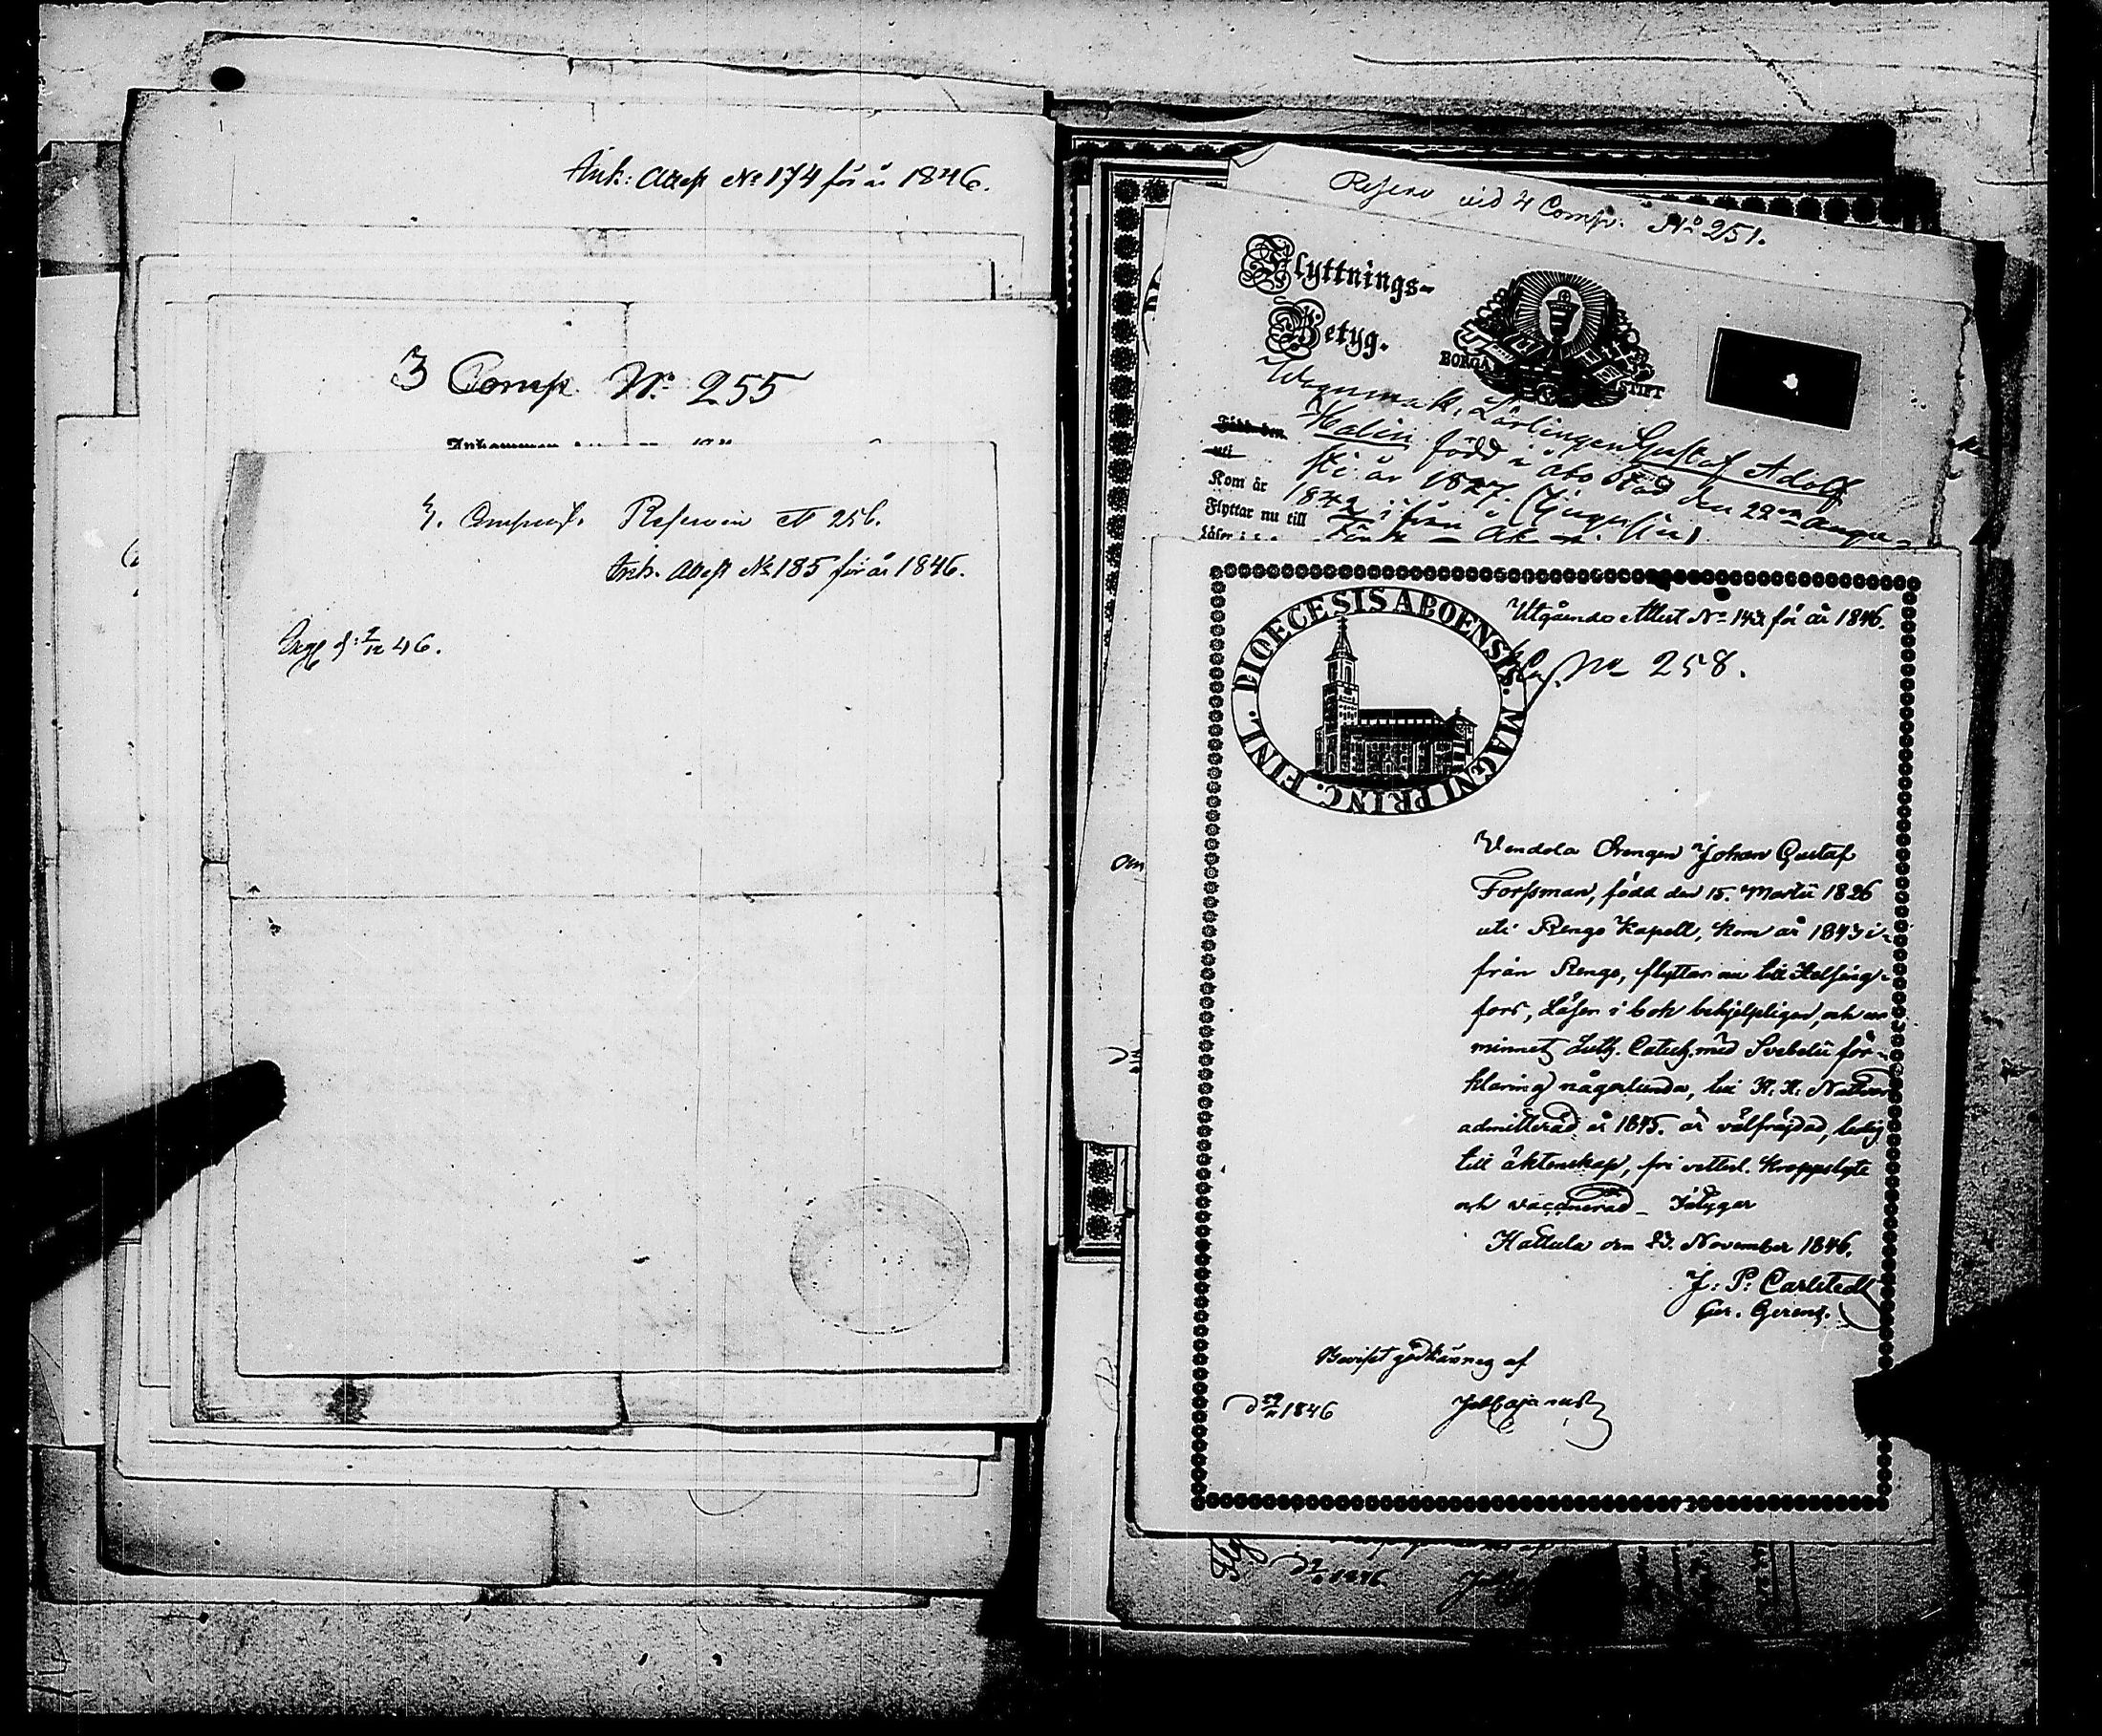 Ank: Attest No 174 för år 1846.
3 Comp No. 255
Reserven No 256.
Ank. Attest No 185 för år 1846.
46.
Reserv vid 4 Comp. No 251.
Flyttnings-
Betyg.
BORGÅ STIFT
Wagnmak. Lärlingen Gustaf Adolf
Född den
Malin född i Åbo Stad den 22 Augu-
uti
sti år 1827.
Kom år 1842 ifrån
Flyttar nu till
Läser i
DIOECESIS ABOENSIS. MAGNI PRINC. FINL.
Utgående Attest No 143 för år 1846.
No 258.
Vendola Drengen Johan Gustaf
Forssman, född den 15. Martii 1826
uti Rengo Kapell, kom år 1843 i-
från Rengo, flyttar nu till Helsing-
fors, Läser i bok behjelpligen, och ur
minnet Luth. Catech. med Svebelii för-
klaring någorlunda, till H. H. Nattvard
admitterad år 1845. är välfrejdad, ledig
till äktenskap, fri vetterl. kroppslyte
och vaccinerad _ Intygar
Hattula den 23. November 1846.
J: P: Carlstedt
Cur. Gerens.
Beviset godkännes af
1846
1846.